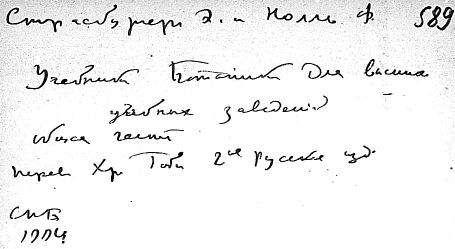 Страсбургер Э. и Нолль Ф. 589
Учебник ботаники для высших
учебных заведений
общая часть
перев Хр Гоби 2ое русское изд.
СПБ